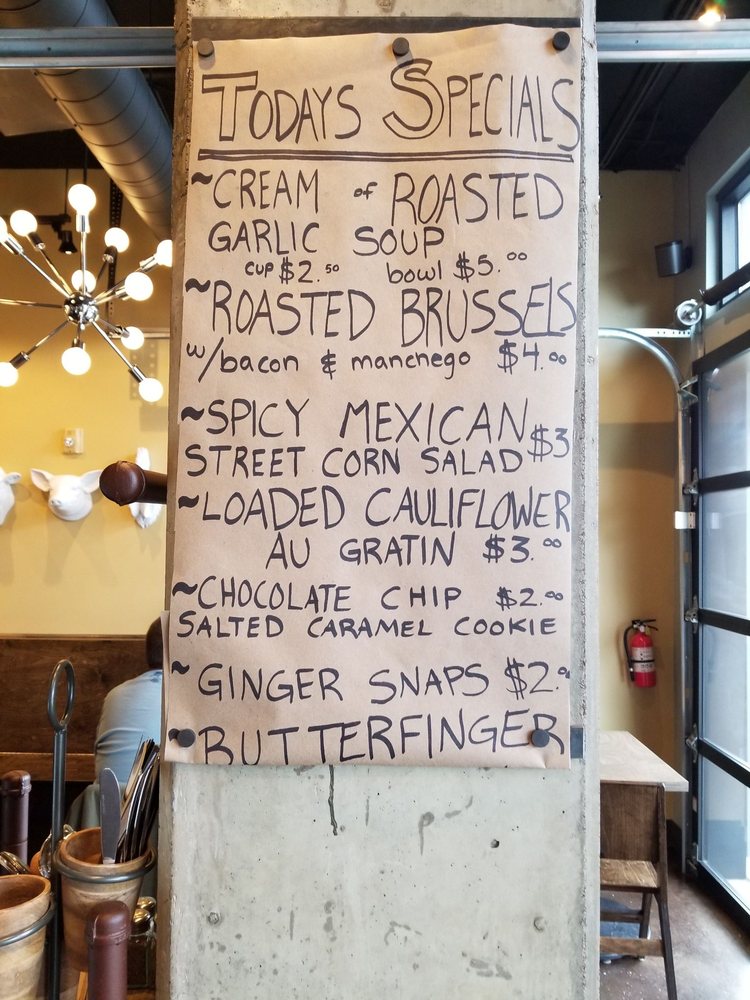 TODAYS SPECIALS
~CREAM of ROASTED
GARLIC SOUP
CUP $2.50 bowl $5.00
~ROASTED BRUSSELS
w/bacon & manchego $4.00
~SPICY MEXICAN
STREET CORN SALAD $3
~LOADED CAULIFLOWER
AU GRATIN $3.00
~CHOCOLATE CHIP $2.00
SALTED CARAMEL COOKIE
~GINGER SNAPS $2.00
~BUTTERFINGER